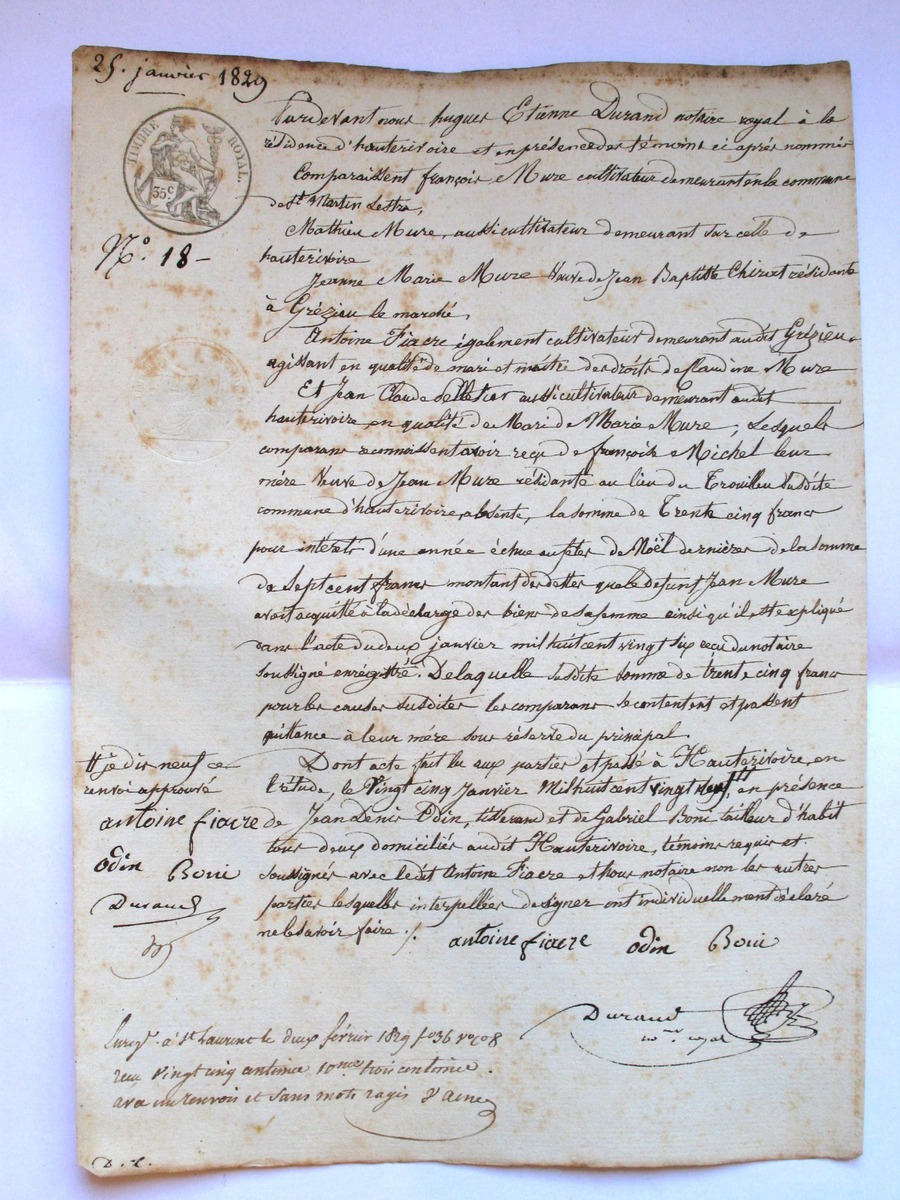 25. janvier 1829
TIMBRE ROYAL.
35 C.
N.o 18 -
Pardevant nous hugues Etienne Durand notaire royal à la
résidence d'hauterivoire et en présence des témoins ci après nommés
Comparaissent françois Mure cultivateur demeurant en la commune
de St Martin Lestra,
Mathieu Mure, aussi cultivateur demeurant sur celle de
hauterivoire
Jeanne Marie Mure Veuve de Jean Baptiste Chirat résidante
à Grézieu le marché,
Antoine Fiacre également cultivateur demeurant audit Grézieu,
agissant en qualité de mari et maître des droits de Claudine Mure
Et Jean Claude Pelletier aussi cultivateur demeurant audit
hauterivoire en qualité de Mari de Marie Mure, Lesquels
comparans reconnoissent avoir reçu de françoise Michel leur
mère Veuve de Jean Mure résidante au lieu du Trouilleu susdite
commune d'hauterivoire, absente, la somme de Trente cinq francs
pour interets d'une année échue aux fêtes de Noël dernières de la somme
de Sept cent francs montant des dettes que le defunt Jean Mure
avoit acquitté à la décharge des biens de sa femme ainsi qu'il est expliqué
dans l'acte du deux janvier mil huit cent vingt six reçu du notaire
soussigné enrégistré. De laquelle susdite somme de trente cinq francs
pour les causes susdites les comparans se contentent et passent
quittance à leur mère sous réserve du principal.
Dont acte fait lu aux parties et passé à Hauterivoire, en
l'étude, le Vingt cinq Janvier Mil huit cent vingt neuf, en présence
de Jean Denis Odin, tisserand et de Gabriel Boni tailleur d'habit
tous deux domiciliés audit Hauterivoire, témoins requis et
soussignés avec ledit Antoine Fiacre et Nous notaire non les autres
parties lesquelles interpellées de signer ont individuellement déclaré
ne le savoir faire ./.
antoine fiacre odin Boni
Durand
nore royal
# je dis neuf ce
renvoi approuvé
antoine fiacre
odin Boni
Durand
Enrgé. à St Laurent le deux février 1829 fo 36 Vo
reçu Vingt cinq centimes 10me trois centimes.
avec un renvoi et sans mots
D. C.